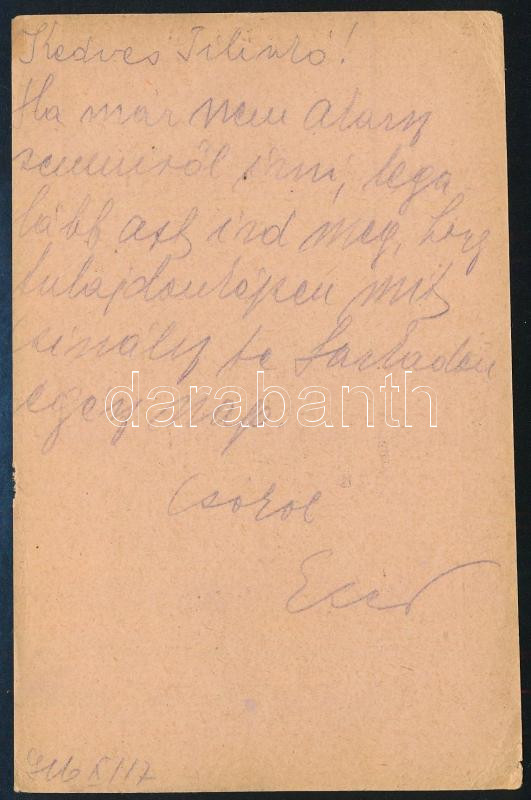 Kedves Tilinkó!
Ha már nem akarsz
semmiről írni, lega
lább azt írd meg, hogy
tulajdonképen mit
csinálsz te
egész nap
darabanth
Csókol
XI/17